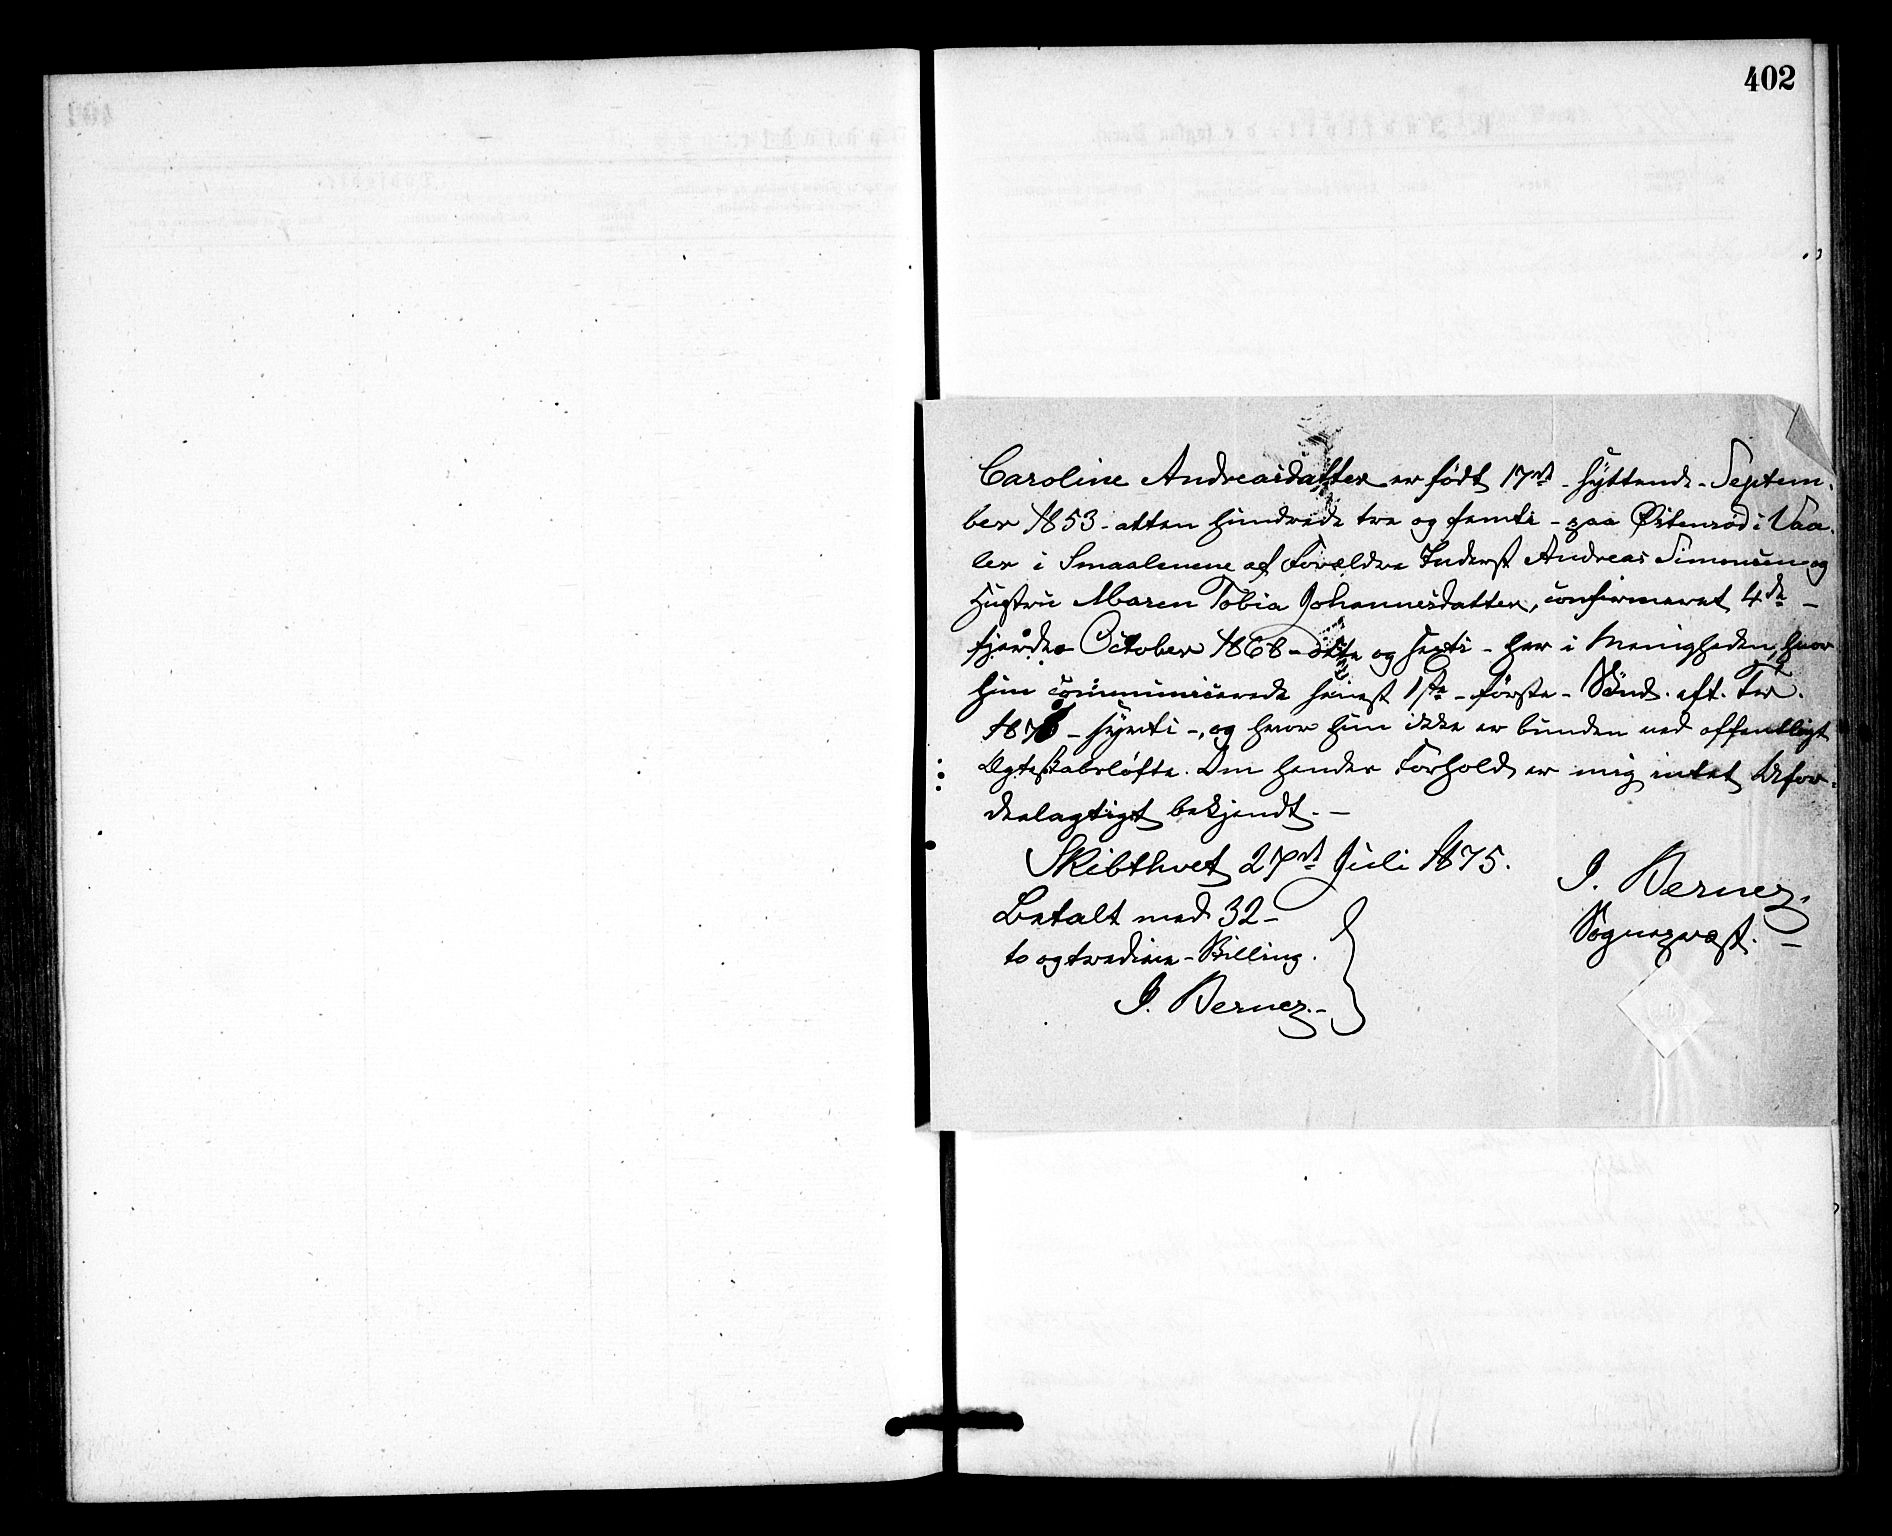 402
Caroline Andreasdatter er født 17de - syttende - Septem-
ber 1853 - atten hundrede tre og femti - paa Østenrød i Vaa-
ler i Smaalenene af Forældre Inderst Andreas Simonsen og
Hustru Maren Tobia Johannesdatter, confirmeret 4de -
fjerde - October 1868 - otte og sexti - her i Menigheden, hvor
hun communicerede senest 1ste - første - Sönd. eft. Tref.
187 - sytti -, og hvor hun ikke er bunden ved offentligt
Ægteskabsløfte. Om hendes Forhold er mig intet Ufor-
deelagtigt bekjendt. -
Skibthvet 27de Juli 1875.
J. Berner,
Betalt med 32 -
Sognepræst. -
to og tredive - Skilling.
J. Berner. -